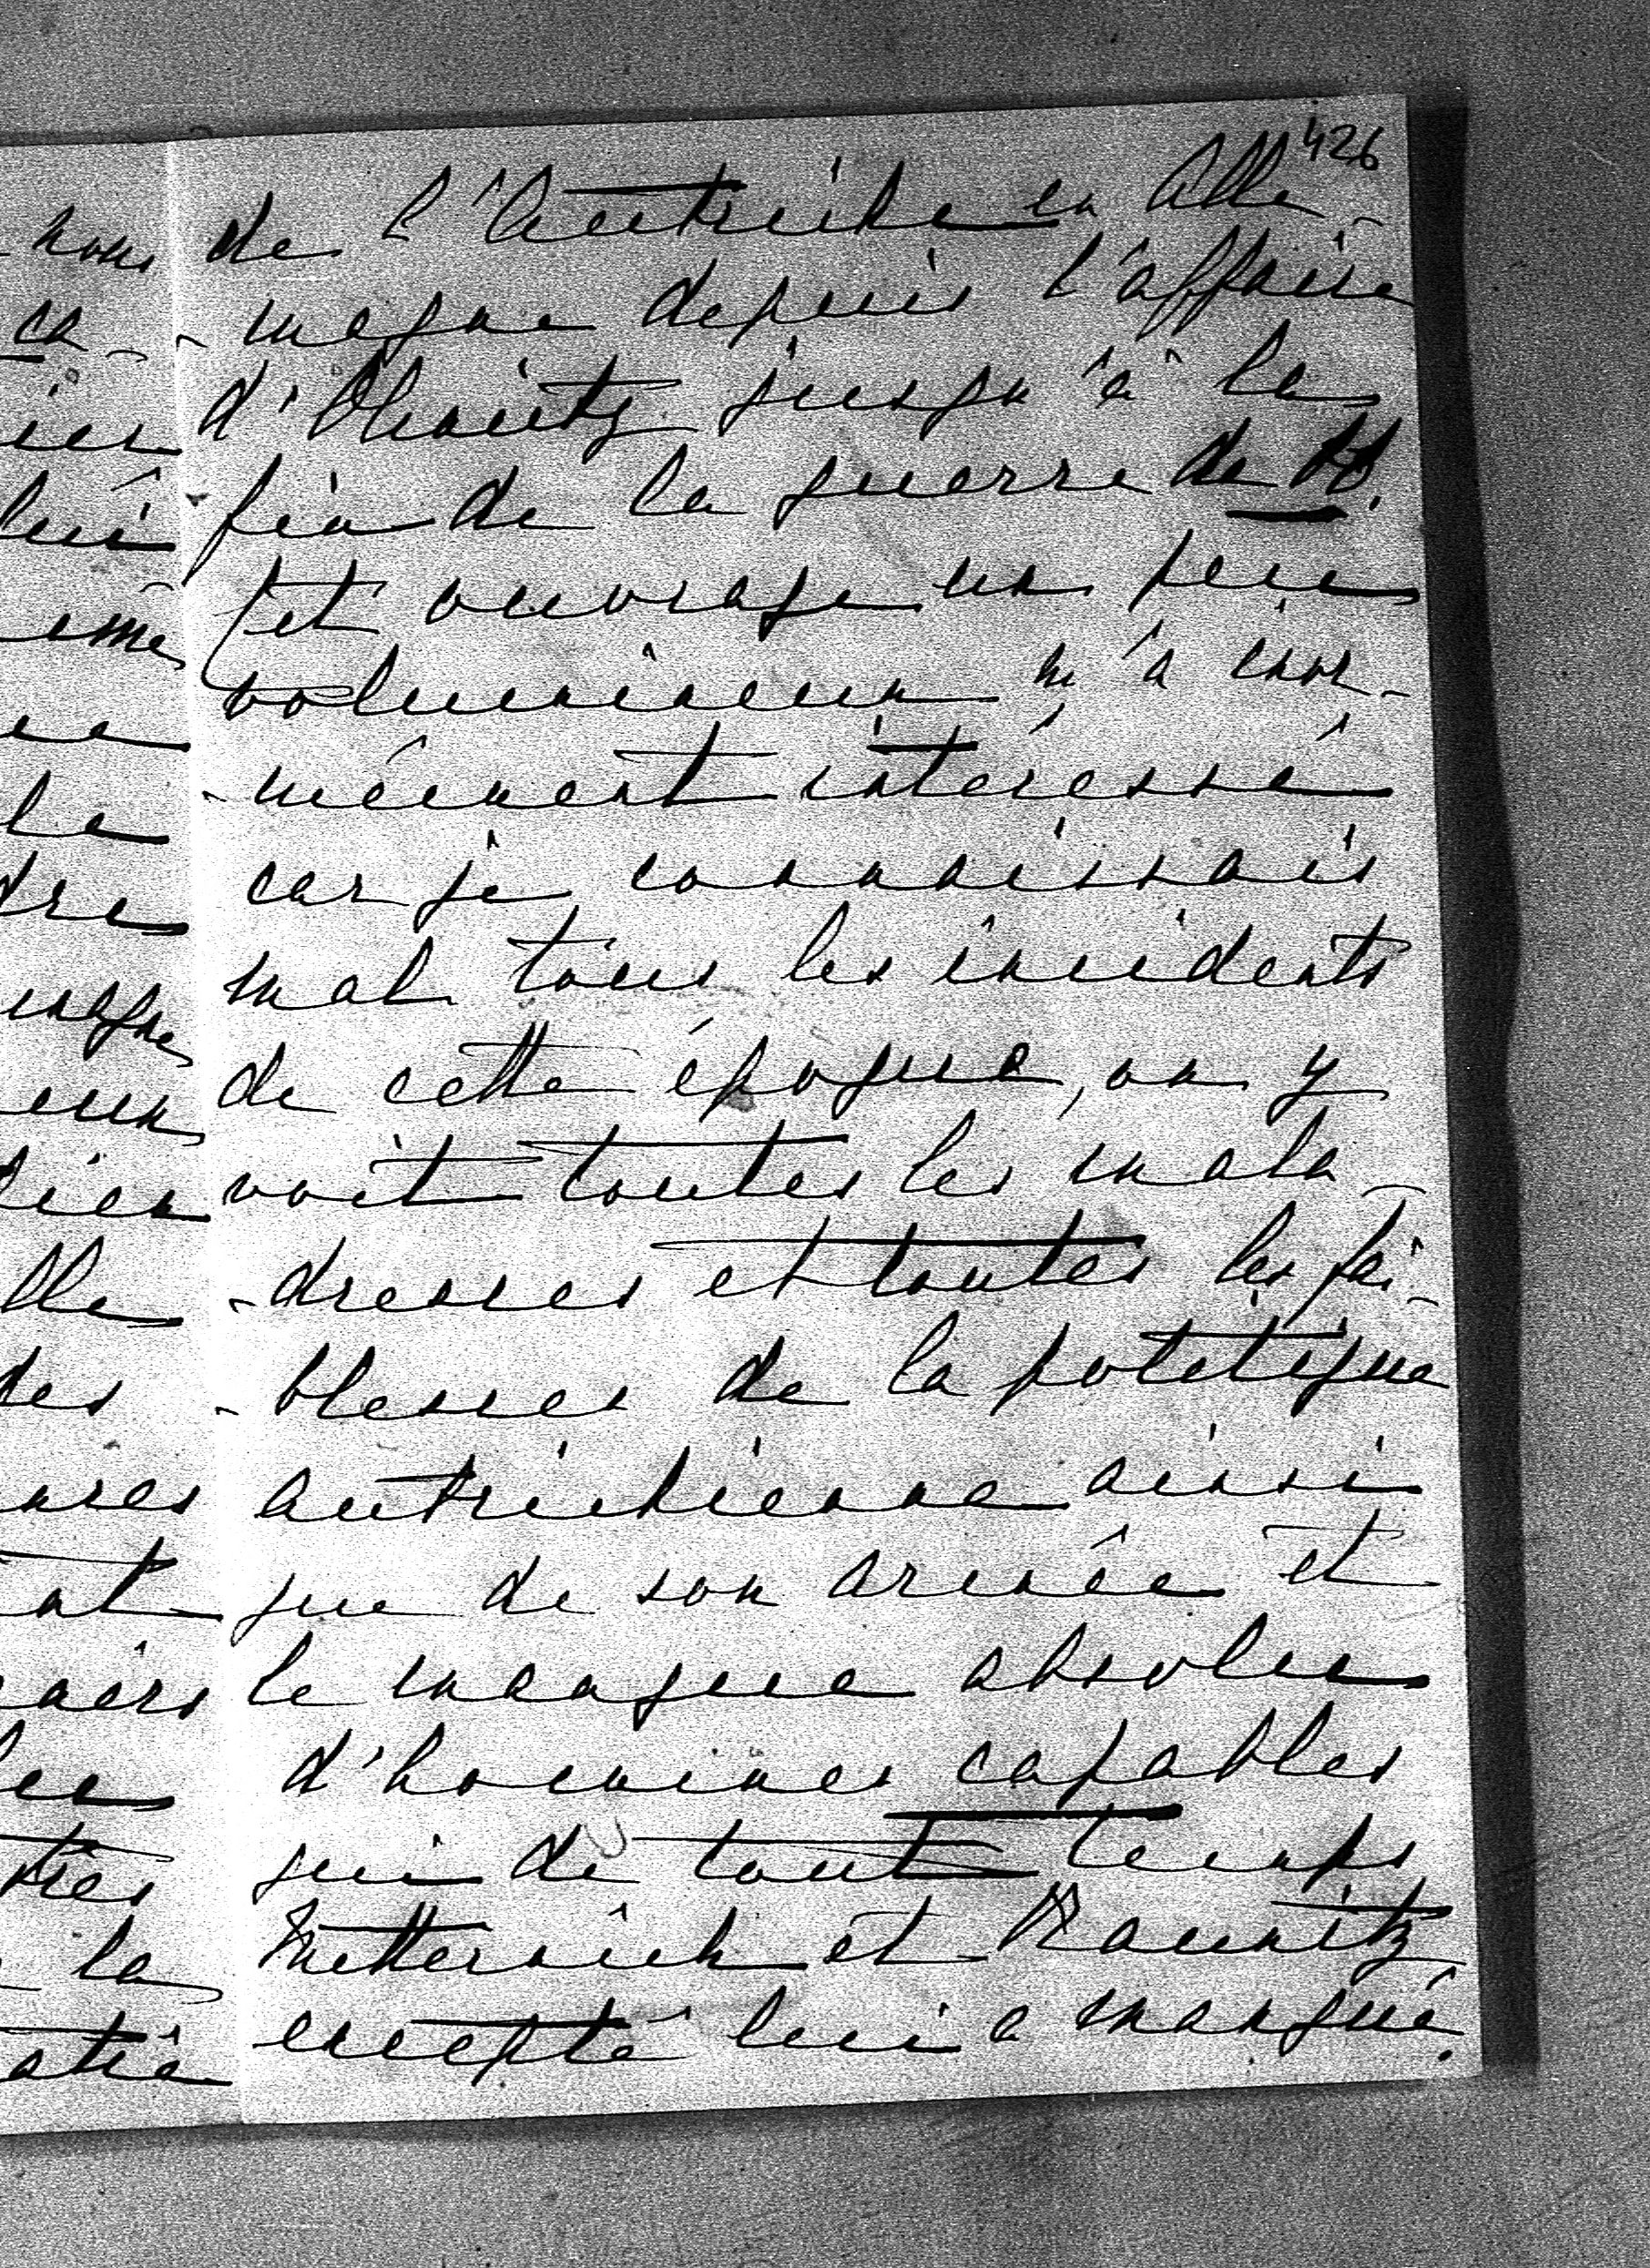 426
de l'Autriche en Alle-
-magne depuis l'affaire
d'Olmütz jusqu'à la
fin de la guerre de
Cet ouvrage un peu
volumineux m'a énor-
-mément intéressé
car je connaissais
mal tous les incidents
de cette époque, on y
voit toutes les mala-
-dresses et toutes les fai-
-blesses de la politique
autrichienne ainsi
que de son armée et
le manque absolu
d'hommes capables
qui de tout temps
Metternich et Kaunitz
excepté lui a manqué.
nous
en
lui
la
dre
des
la